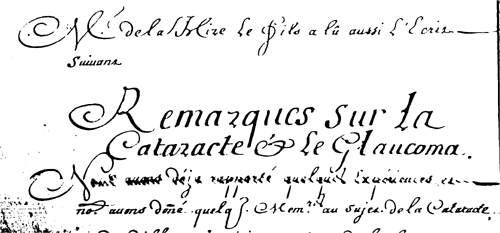 Mr. de la Hire le fils a lû aussi l'Ecris
suivans
Remarques sur la
Cataracte & le Glaucoma.
Nous avons déja rapporté quelques Expériences et
ns. avons doñé quelq. Mem. au sujes de la Cataracte